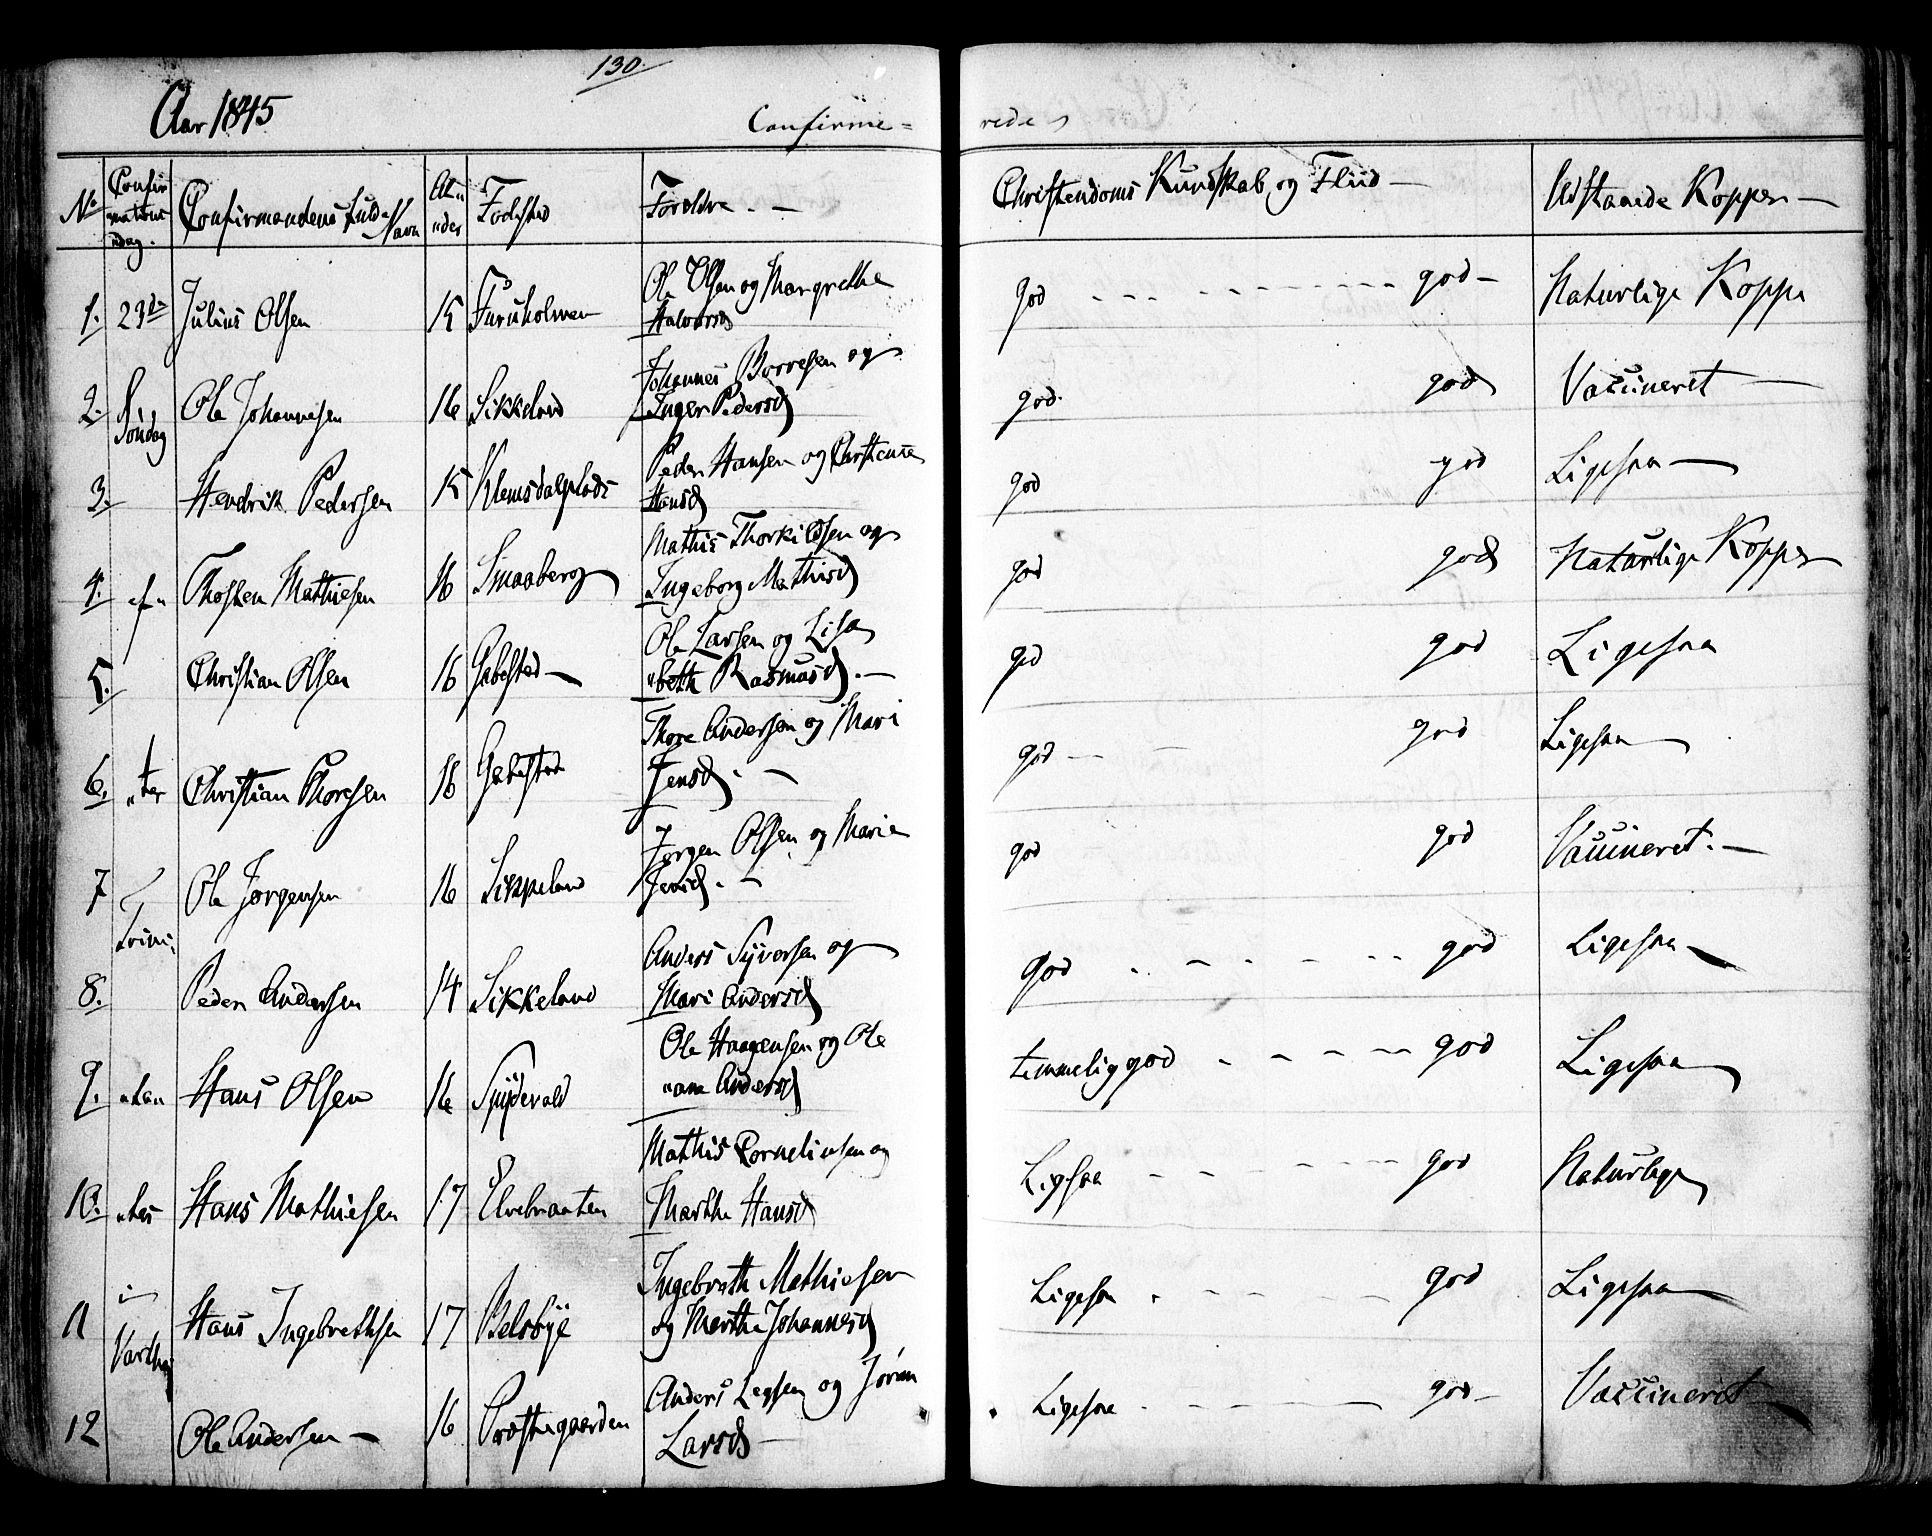 130.
Aar 1845
Confirme=
rede
No
Confir
mations
dag.
Confirmandens fulde
Navn
Føcksted
Foreldre. —
Christendoms Kundskab og Fliid —
Udstaaede Kopper —
1. 23de Julius Olsen 15 Furuholmen Ole Olsen og Margrethe
Halvorsd
god - - - - - - - - god — Naturlige Koppe
2. Søndag Ole Johannesen 16 Sikkeland Johannes Borresen og
Inger Pedersd
god. god Vaccineret —
3. Hendrik Pedersen 15 Klemsdalplads Peder Hansen og
Hansd
god god Ligesaa —
4. ef„ Thosten Mathiesen 16 Smaaberg Mathis Thorkildsen og
Ingeborg Mathisd
god god Naturlige Kopper
5. Christian Olsen 16 Gabestad — Ole Larsen og Lisa
„beth Rasmusd. —
god god Ligesaa
6. „ter Christian Thoresen 16 Gabestad Thore Andersen og Mari
Jensd. —
god — — god Ligesaa
7 Ole Jørgensen 16 Sikkeland Jørgen Olsen og Marie
god god Vaccineret. —
Trini„
8. Peder Andersen 14 Sikkeland Anders Syversen og
Mari Andersd
god - - - - - god Ligesaa
9. „ta„ Hans Olsen 16 Spydevold Ole Haagensen og Ole
„ane Andersd
temmelig god - - - - god Ligesaa
10. „tis Hans Mathiesen 17 Elvebraaten Mathis Corneliusen og
Marthe Hansd
Ligesaa - - - - - god Naturlige
11 i Hans Ingebrethsen 17 Belsbye Ingebreth Mathiesen
og Marthe Johannesd
Ligesaa - - - - god Ligesaa
12 Ole Andersen — 16 Præstegaarden Anders Legsen og Jøran
Larsd —
Ligesaa - - - - god — Vaccineret